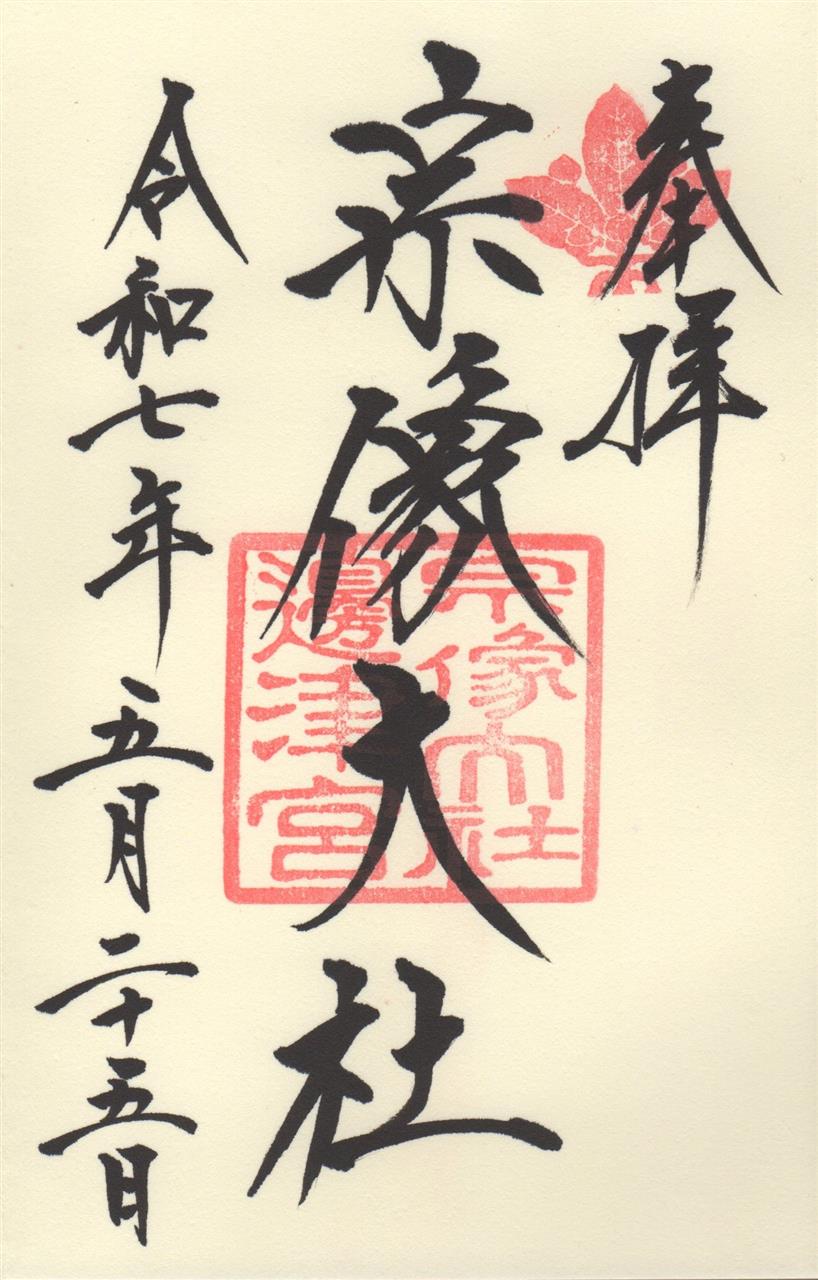 奉拝
宗像大社
宗像大社
邊津宮
令和七年五月二十五日